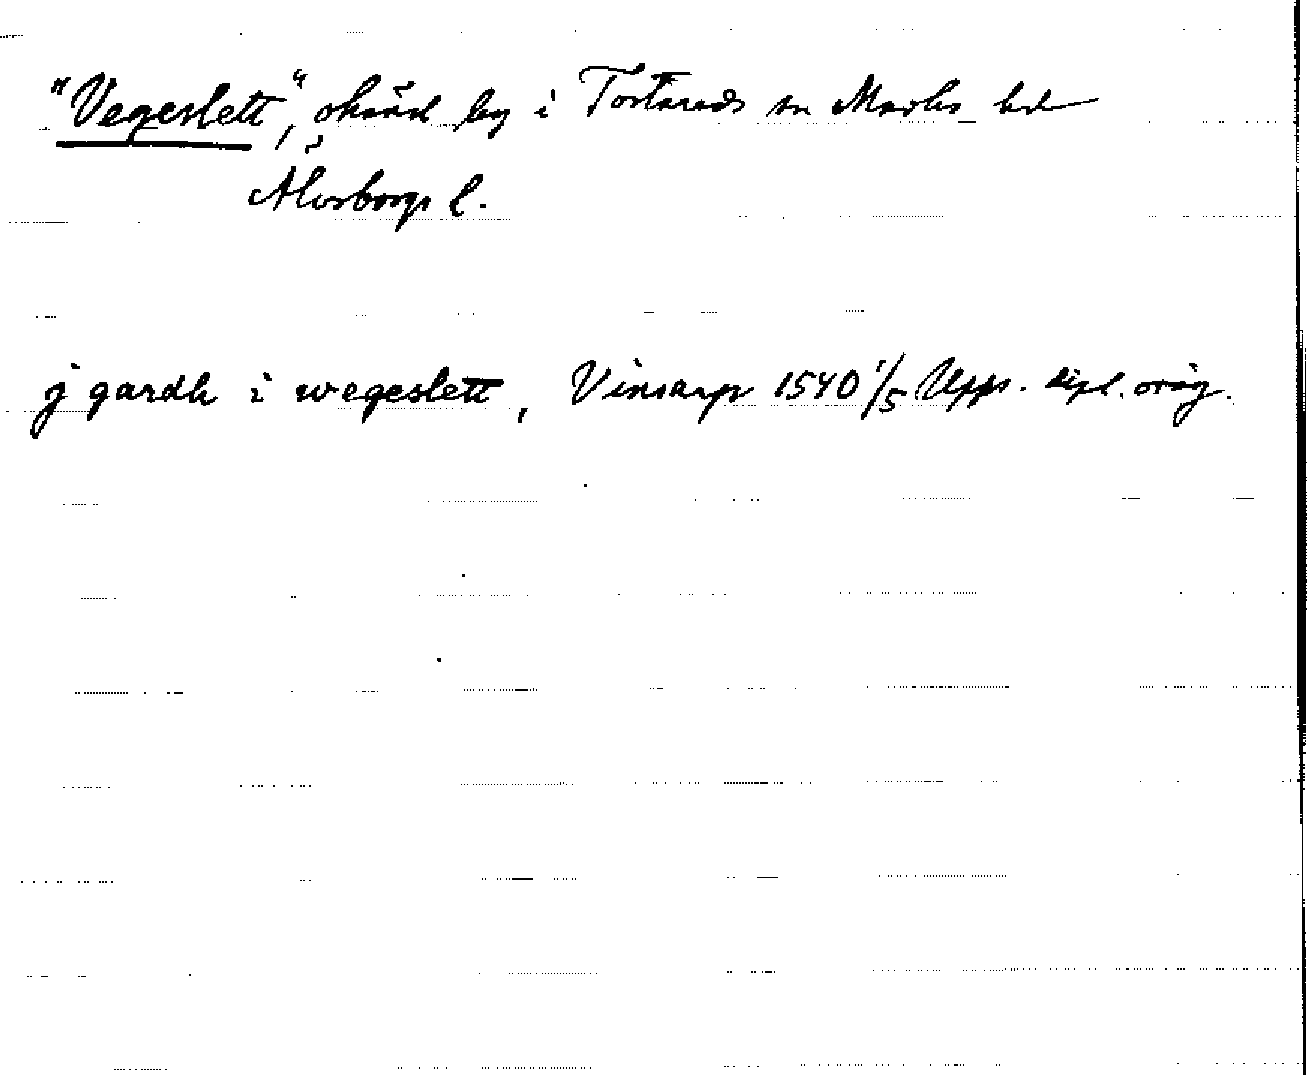 "Vegeslett", okänd by i Torestorps sn Marks hd
Älvsborgs l.
j gardh i wegeslett, Vinsarp 1540 1/5 Upps. dipl. orig.